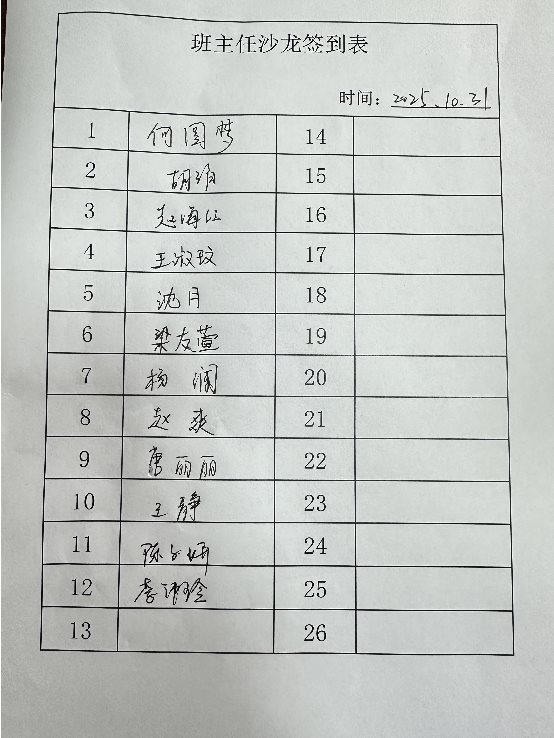 班主任沙龙签到表
时间：2025.10.31
1 何圆梦 14
2 胡 15
3 赵海江 16
4 王淑玟 17
5 沈月 18
6 梁友萱 19
7 杨澜 20
8 赵爽 21
9 唐丽丽 22
10 王静 23
11 陈妍 24
12 李玲 25
13 26